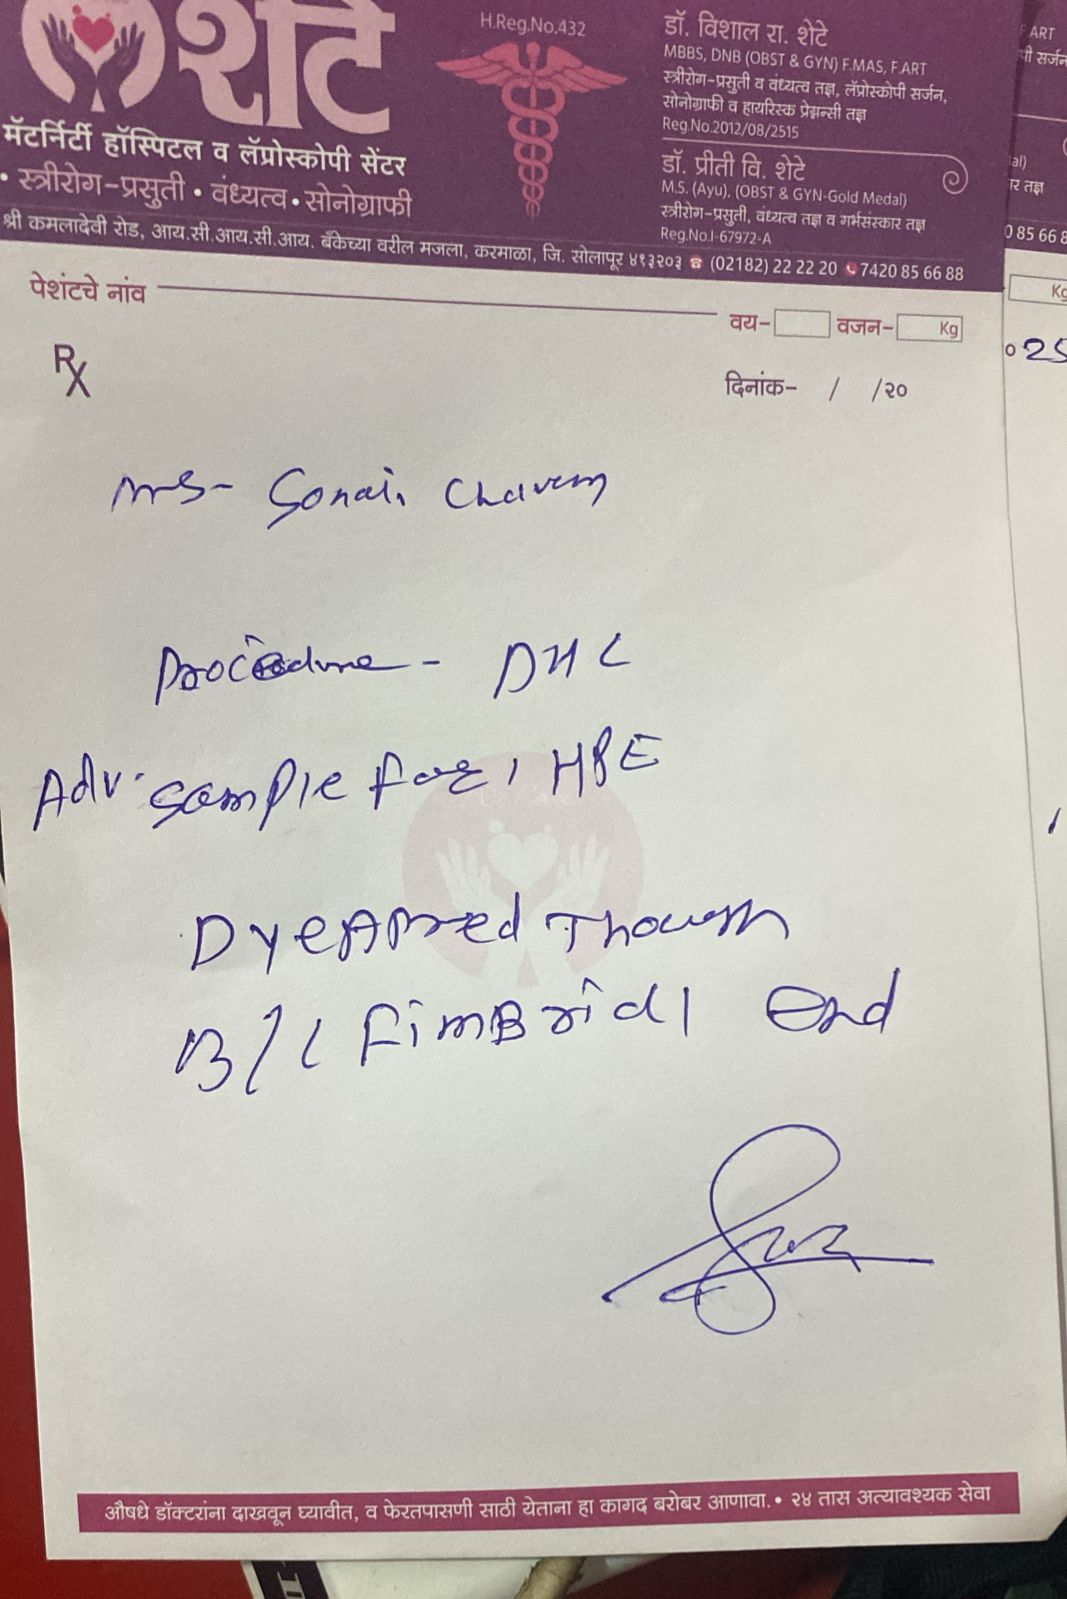 शेटे
मॅटर्निटी हॉस्पिटल व लॅप्रोस्कोपी सेंटर
• स्त्रीरोग-प्रसुती • वंध्यत्व • सोनोग्राफी
H.Reg.No.432
डॉ. विशाल रा. शेटे
MBBS, DNB (OBST & GYN) F.MAS, F.ART
स्त्रीरोग-प्रसुती व वंध्यत्व तज्ञ, लॅप्रोस्कोपी सर्जन,
सोनोग्राफी व हायरिस्क प्रेग्नन्सी तज्ञ
Reg.No.2012/08/2515
डॉ. प्रीती वि. शेटे
M.S. (Ayu), (OBST & GYN-Gold Medal)
स्त्रीरोग-प्रसुती, वंध्यत्व तज्ञ व गर्भसंस्कार तज्ञ
Reg.No.I-67972-A
श्री कमलादेवी रोड, आय.सी.आय.सी.आय. बँकेच्या वरील मजला, करमाळा, जि. सोलापूर ४१३२०३ ☎ (02182) 22 22 20 7420 85 66 88
पेशंटचे नांव
वय- वजन- Kg
Rx
दिनांक- / /२०
Procedure - DHL
Adv. sample for, HPE
Dye through
B/L Fimbrial end
औषधे डॉक्टरांना दाखवून घ्यावीत, व फेरतपासणी साठी येताना हा कागद बरोबर आणावा. • २४ तास अत्यावश्यक सेवा